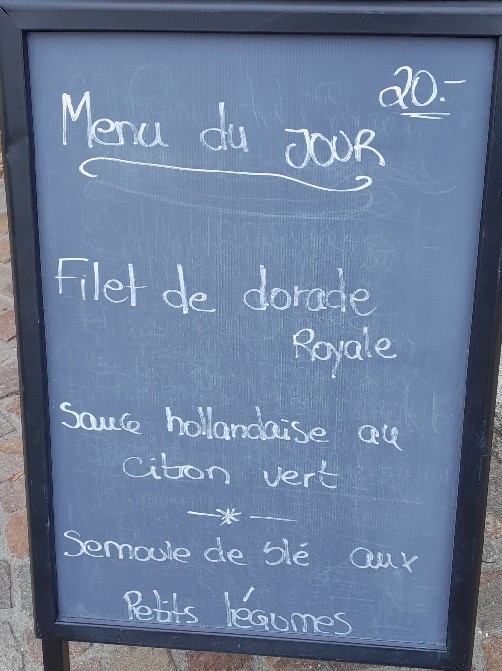 20.-
Menu du JOUR
Filet de dorade
Royale
Sauce hollandaise au
citron vert
Semoule de blé aux
Petits légumes